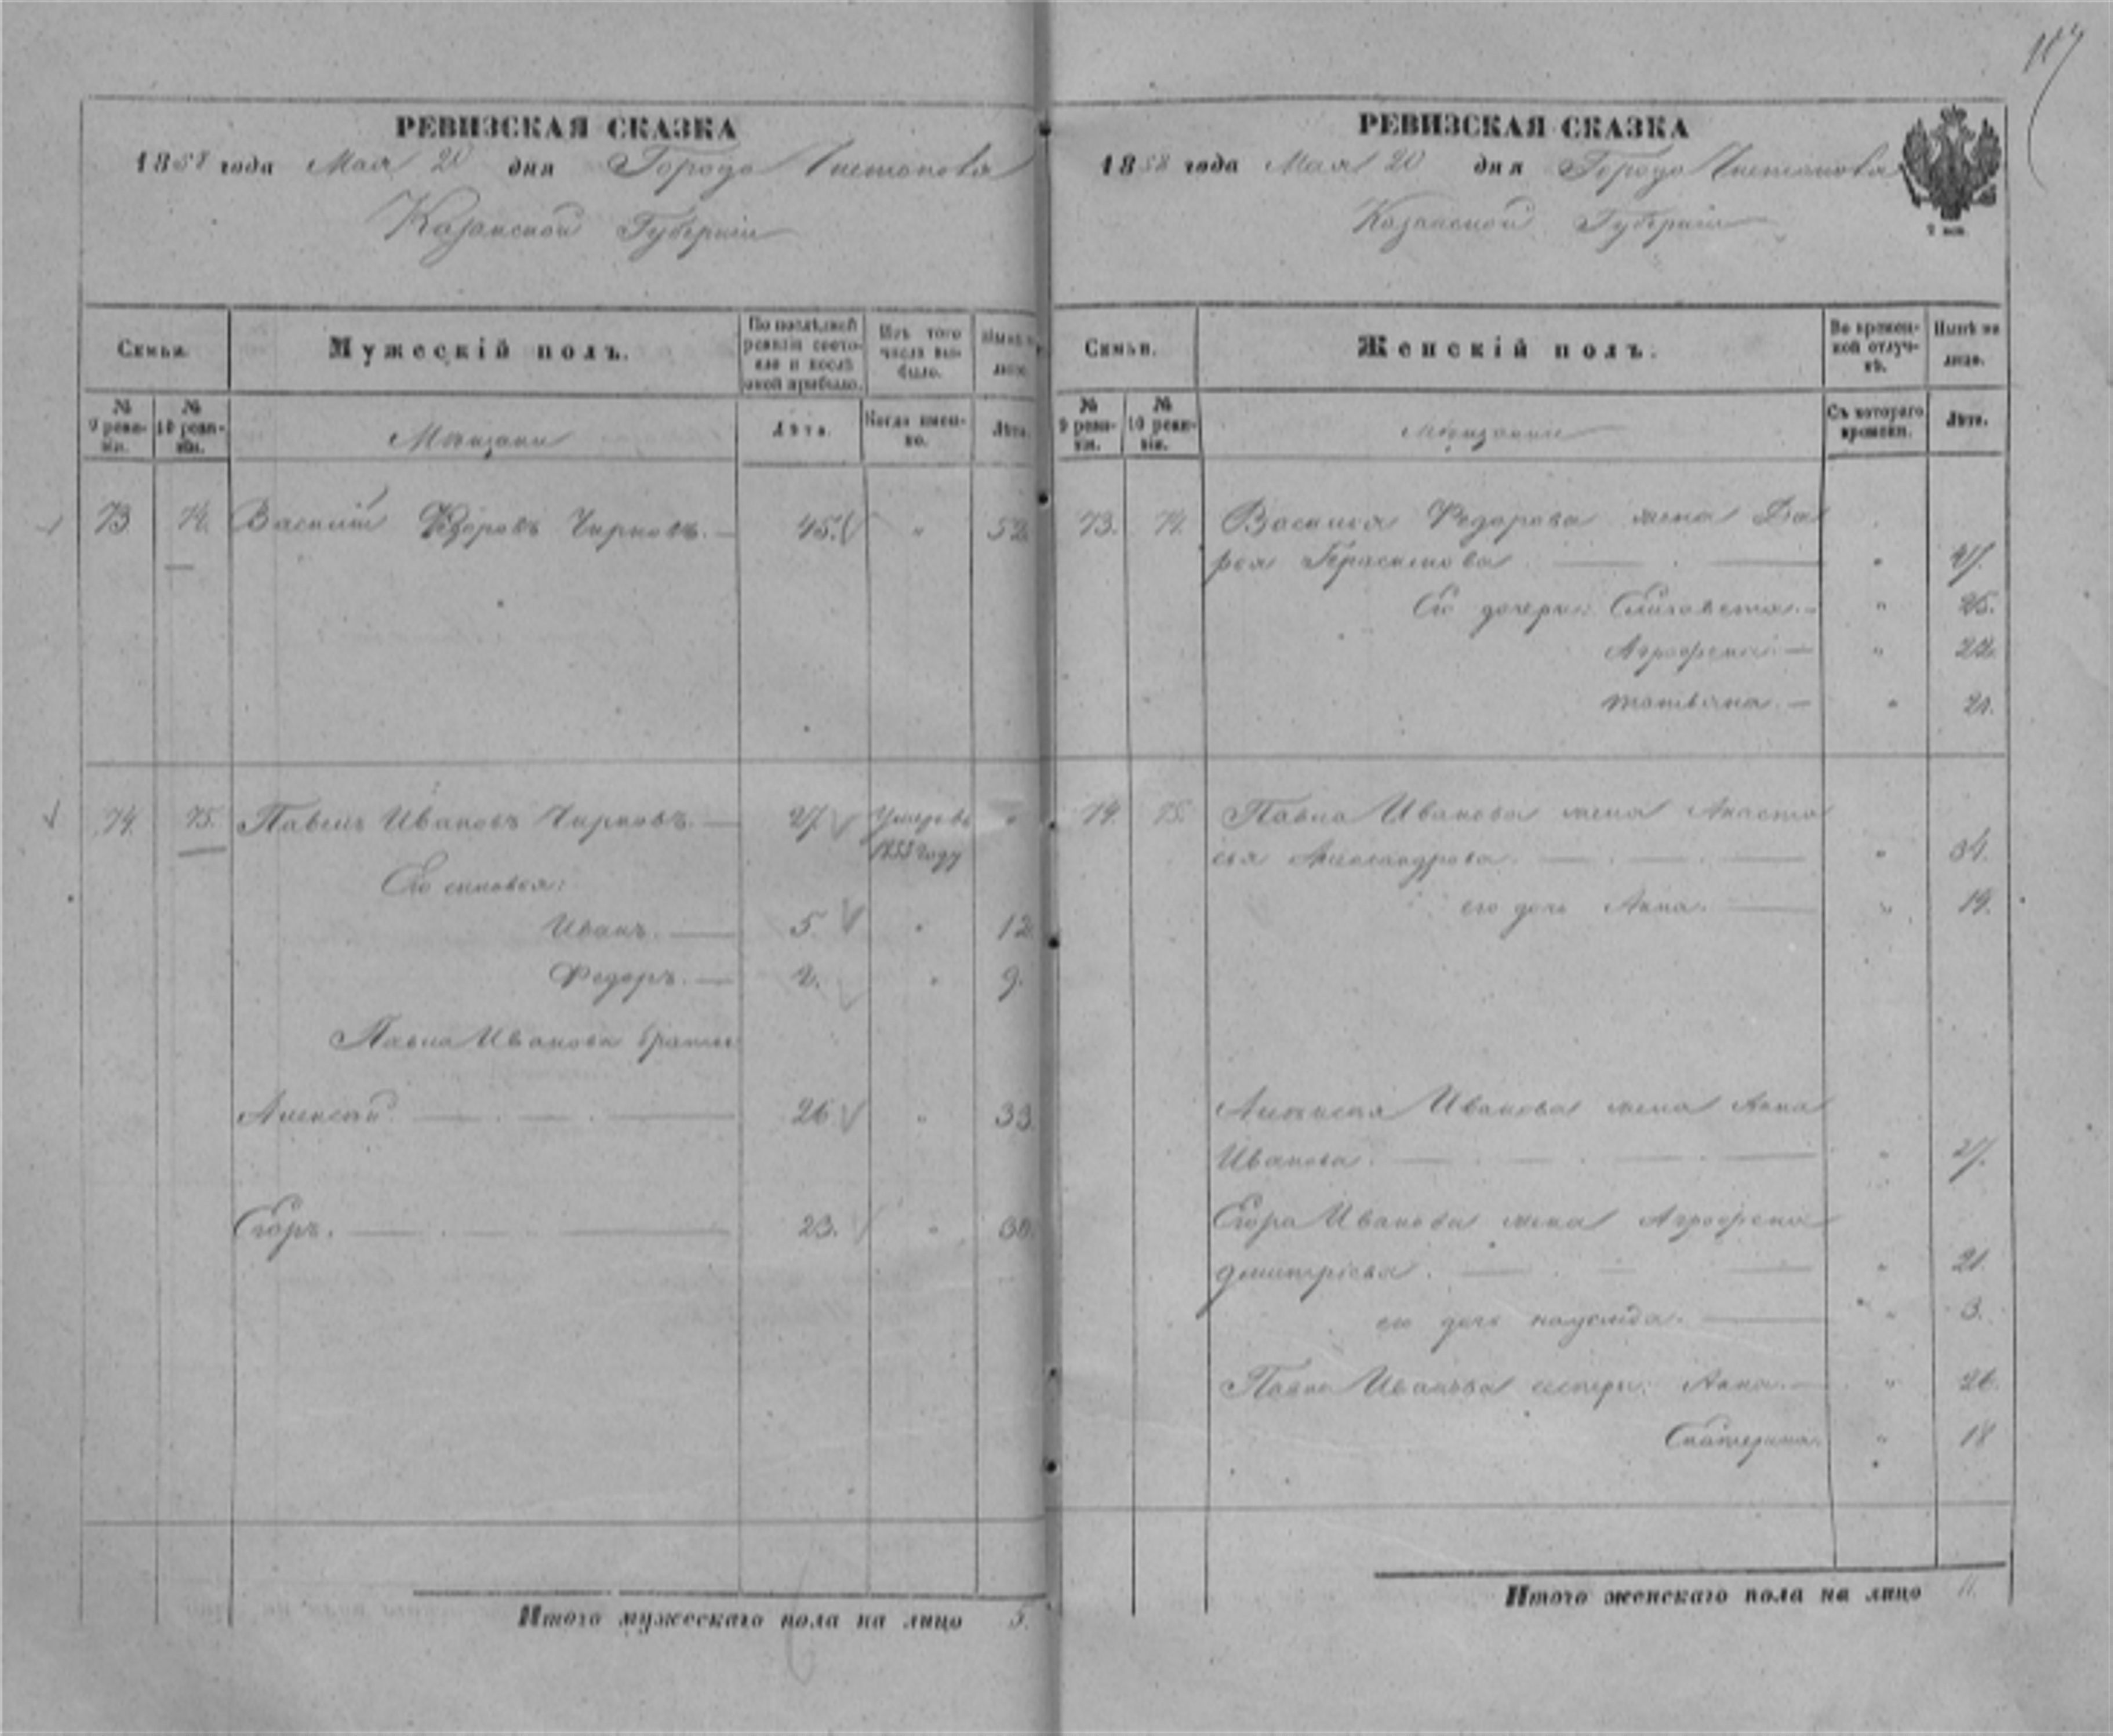 117
РЕВИЗСКАЯ СКАЗКА
1858 года Мая 20 дня Города Чистополя
Казанской Губерніи
Семьи.
Мужескій полъ.
По послѣдней ревизіи состояло и послѣ оной прибыло.
Изъ того числа выбыло.
Нынѣ на лицо.
№ 9 ревизіи.
№ 10 ревизіи.
Мѣщане
Лѣта.
Когда именно.
Лѣта.
73 74. Василій Ѳедоровъ Чирковъ. 45. " 52.
74. 75. Павелъ Ивановъ Чирковъ. 27. Умеръ въ "
1855 году
Его сыновья:
Иванъ. 5. " 12.
Федоръ. 2. " 9.
Павла Иванова братья
Алексѣй 26 " 33.
Егоръ. 23. " 30.
Итого мужескаго пола на лицо 5.
РЕВИЗСКАЯ СКАЗКА
1858 года Мая 20 дня Города Чистополя
Казанской Губерніи
2 коп.
Семьи.
Женскій полъ.
Во временной отлучкѣ.
Нынѣ на лицо.
№ 9 ревизіи.
№ 10 ревизіи.
Мѣщанки
Съ котораго времени.
Лѣта.
73. 74. Василья Федорова жена Да
рья Герасимова " 47.
Его дочери: Елизавета. " 25.
Агрофена. " 22.
татьяна. " 21.
74. 75. Павла Иванова жена Анаста
сья Александрова. " 34.
его дочь Анна. " 19.
Алексѣя Иванова жена Анна
Иванова. " 27.
Егора Иванова жена Агрофена
дмитріева. " 21.
его дочь " 3.
Павла Иванова сестры: Анна. " 26.
Екатерина. " 18
Итого женскаго пола на лицо 11.